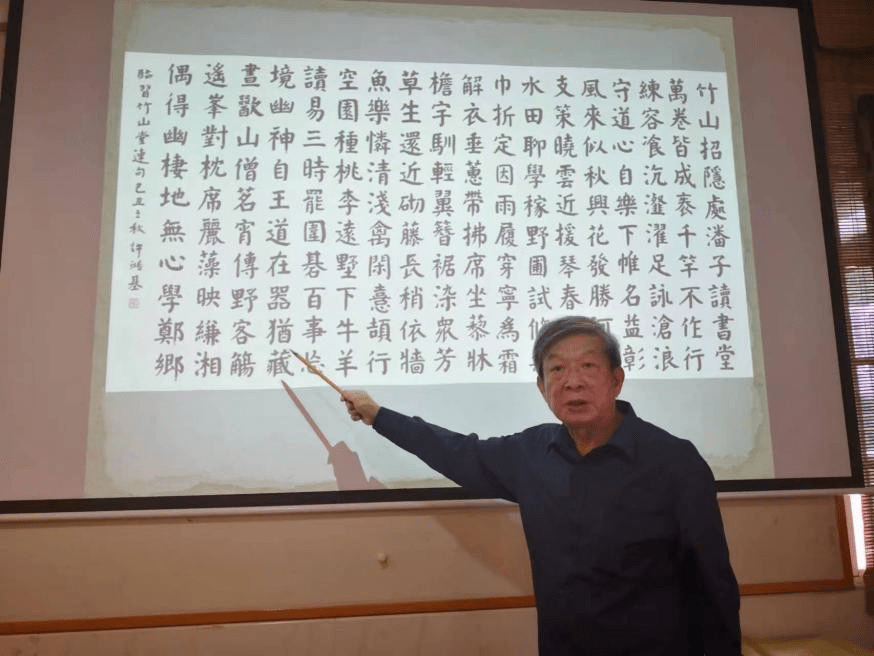 竹山招隱處潘子讀書堂
萬卷皆成袠千竿不作行
練容飡沆瀣濯足詠滄浪
守道心自樂下帷名益彰
風來似秋興花發勝
支策曉雲近援琴春
水田聊學稼野圃試
巾折定因雨履穿寧爲霜
解衣垂蕙帶拂席坐藜牀
檐字馴輕翼簪裾染眾芳
草生還近砌藤長稍依牆
魚樂憐清淺禽閑憙頡行
空園種桃李遠墅下牛羊
讀易三時罷圍碁百事
境幽神自王道在器猶藏
晝歠山僧茗宵傳野客觴
遙峯對枕席麗藻映縑緗
偶得幽棲地無心學鄭鄉
臨習竹山堂連句己丑之秋 許鴻基